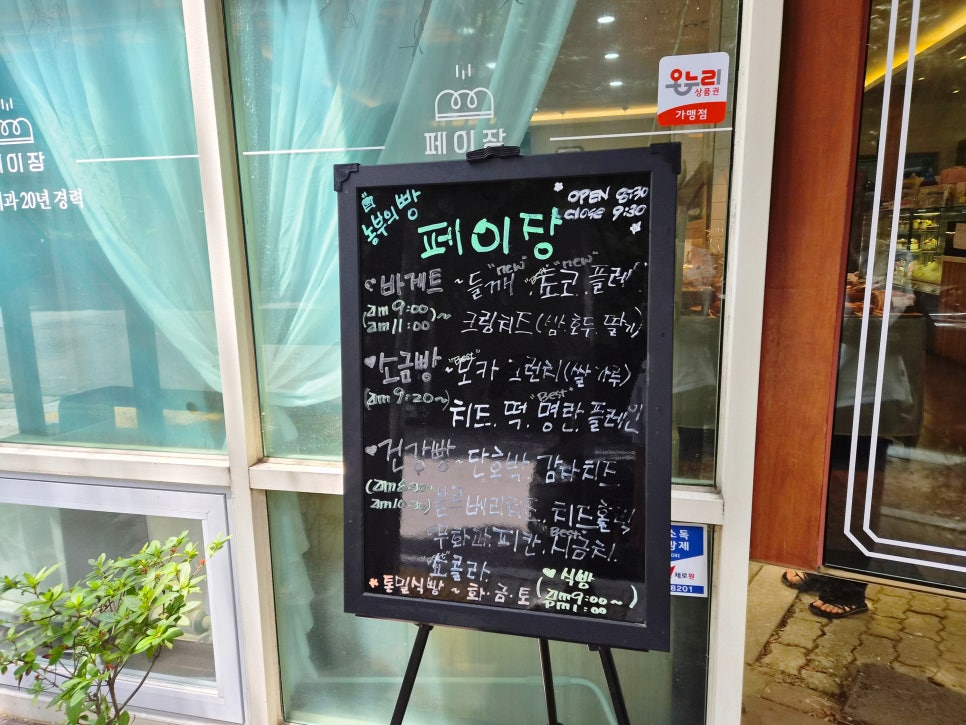 페이장
과 20년 경력
페이장
온누리
상품권
가맹점
농부의 빵
OPEN 8:30
CLOSE 9:30
페이장
바게트 ~ 들깨 "new", 쵸코 "new", 플레인
(am 9:00 am 11:00)~
크림치즈(밤, 호두, 딸기)
소금빵 "Best" ~ 모카 크런치(쌀가루)
(am 9:20~)
치즈, 떡, 명란 "Best", 플레인
건강빵 ~ 단호박, 감자치즈,
치즈
무화과, 피칸, 시금치 "Best",
쇼콜라
통밀식빵 ~ 화·금·토
식빵
8201